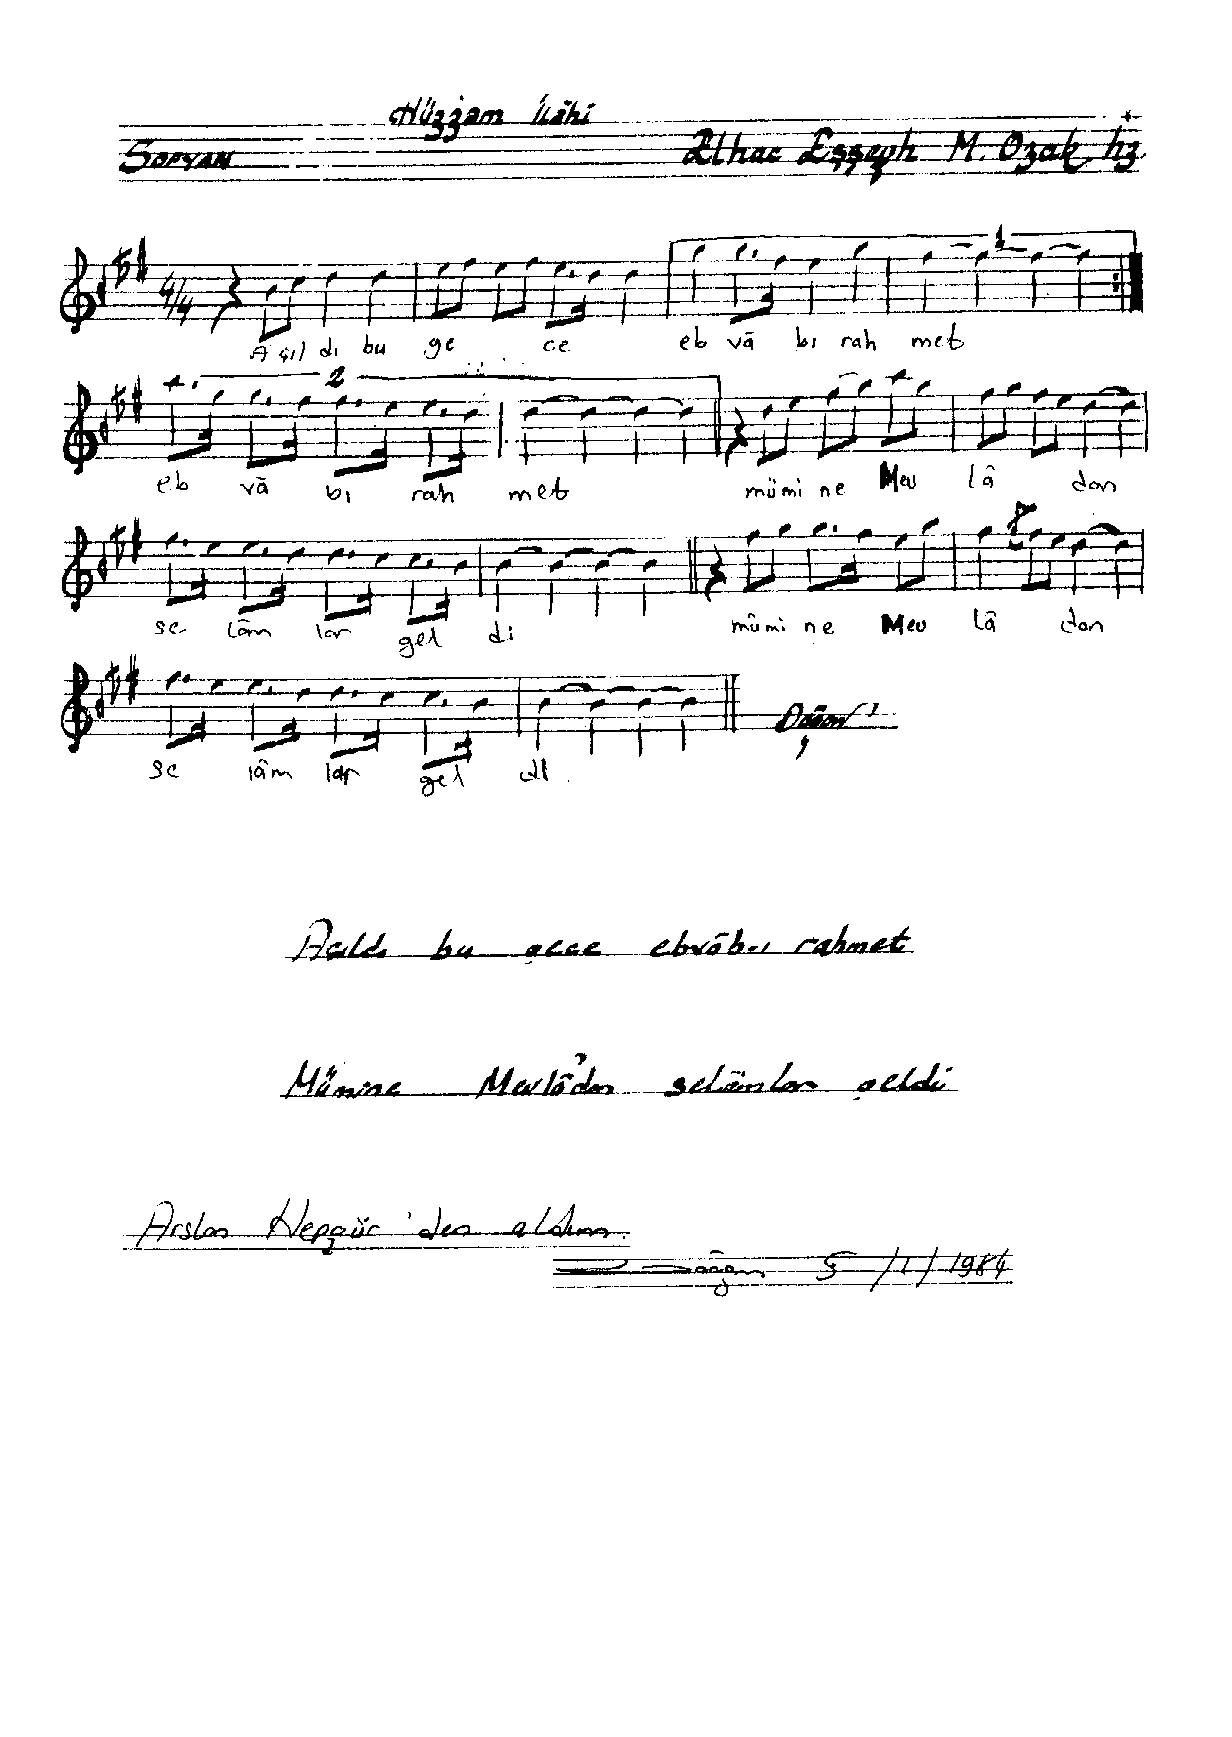 Hüzzam İlâhi
SOFYAN Elhac Eşşeyh M. Ozak hz.
4/4
1
A çıl dı bu ge ce eb vâ bı rah met
2
eb vâ bı rah met mümi ne Mev lâ dan
se lâm lar gel di mümi ne Mev lâ dan
se lâm lar gel di
Açıldı bu gece ebvâb-ı rahmet
Mümine Mevlâ'dan selâmlar geldi
Arslan Hepgür'den aldım.
5/1/1984